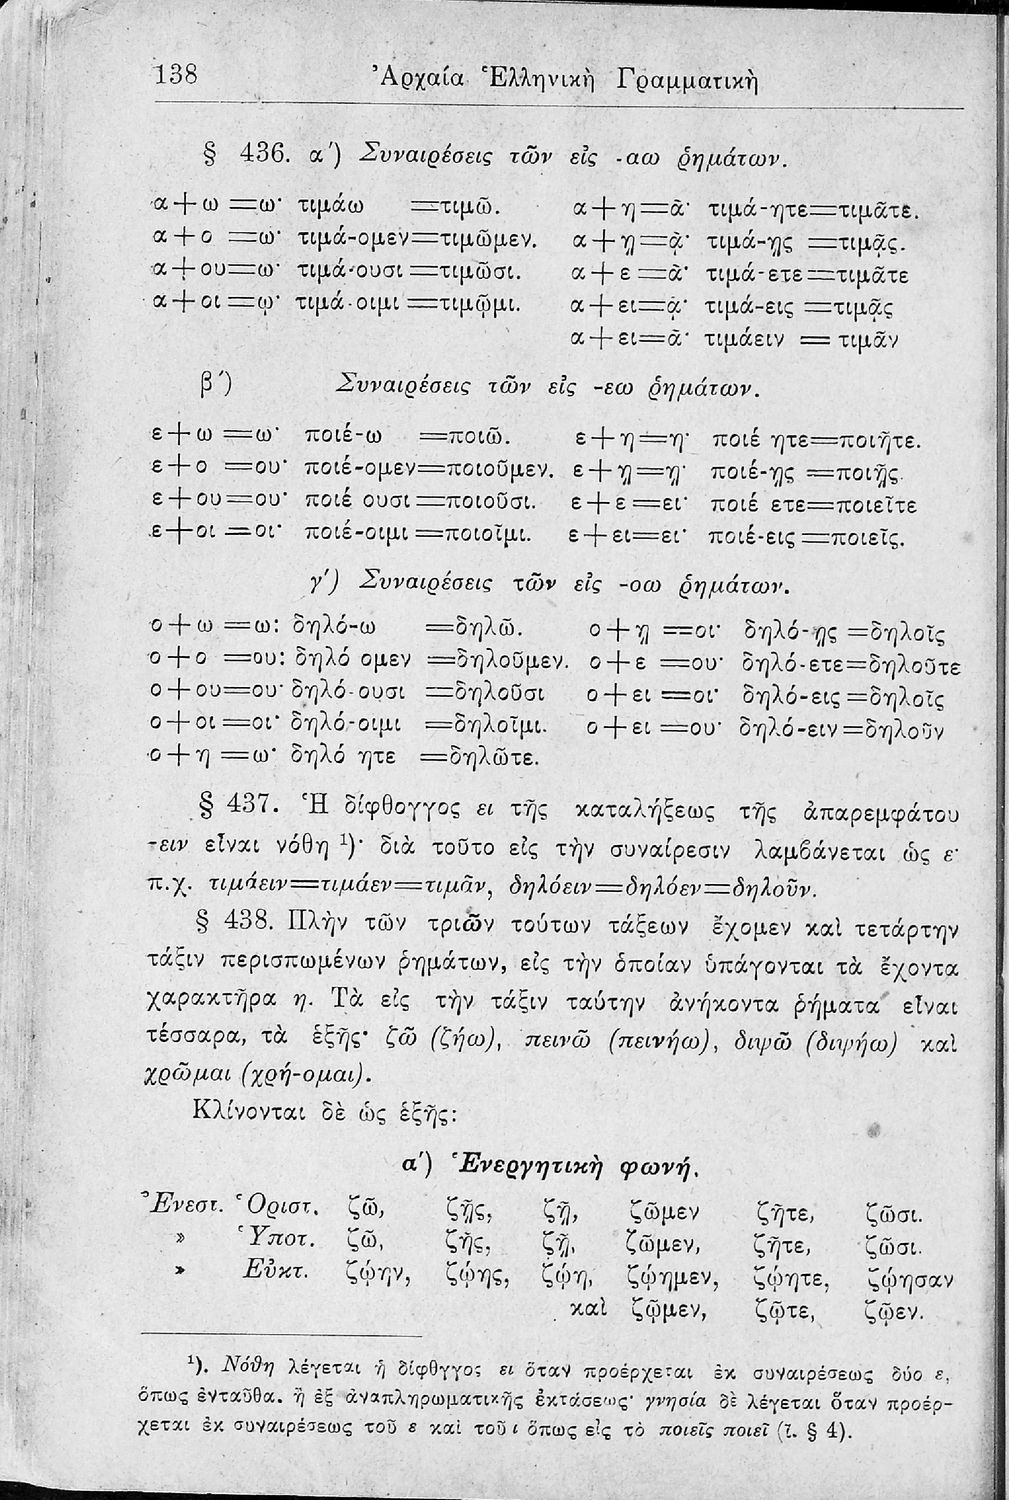 138 Ἀρχαία Ἑλληνικὴ Γραμματικὴ
§ 436. α΄) Συναιρέσεις τῶν εἰς -αω ῥημάτων.
α+ω =ω· τιμάω =τιμῶ. α+η=ᾶ· τιμά-ητε=τιμᾶτε.
α+ο =ω· τιμά-ομεν=τιμῶμεν. α+ῃ=ᾷ· τιμά-ῃς =τιμᾷς.
α+ου=ω· τιμά-ουσι =τιμῶσι. α+ε =ᾶ· τιμά-ετε=τιμᾶτε
α+οι=ῳ· τιμά-οιμι =τιμῷμι. α+ει=ᾳ· τιμά-εις =τιμᾷς
α+ει=ᾶ· τιμάειν = τιμᾶν
β΄) Συναιρέσεις τῶν εἰς -εω ῥημάτων.
ε+ω =ω· ποιέ-ω =ποιῶ. ε+η=η· ποιέ ητε=ποιῆτε.
ε+ο =ου· ποιέ-ομεν=ποιοῦμεν. ε+ῃ=ῃ· ποιέ-ῃς =ποιῇς.
ε+ου=ου· ποιέ ουσι=ποιοῦσι. ε+ε=ει· ποιέ ετε=ποιεῖτε
ε+οι =οι· ποιέ-οιμι =ποιοῖμι. ε+ει=ει· ποιέ-εις =ποιεῖς.
γ΄) Συναιρέσεις τῶν εἰς -οω ῥημάτων.
ο+ω =ω: δηλό-ω =δηλῶ. ο+ῃ =οι· δηλό-ῃς =δηλοῖς
ο+ο =ου: δηλό ομεν =δηλοῦμεν. ο+ε =ου· δηλό-ετε=δηλοῦτε
ο+ου=ου· δηλό-ουσι =δηλοῦσι ο+ει =οι· δηλό-εις =δηλοῖς
ο+οι =οι· δηλό-οιμι =δηλοῖμι. ο+ει =ου· δηλό-ειν=δηλοῦν
ο+η =ω· δηλό ητε =δηλῶτε.
§ 437. Ἡ δίφθογγος ει τῆς καταλήξεως τῆς ἀπαρεμφάτου
-ειν εἶναι νόθη ¹)· διὰ τοῦτο εἰς τὴν συναίρεσιν λαμβάνεται ὡς ε·
π.χ. τιμάειν=τιμάεν=τιμᾶν, δηλόειν=δηλόεν=δηλοῦν.
§ 438. Πλὴν τῶν τριῶν τούτων τάξεων ἔχομεν καὶ τετάρτην
τάξιν περισπωμένων ῥημάτων, εἰς τὴν ὁποίαν ὑπάγονται τὰ ἔχοντα
χαρακτῆρα η. Τὰ εἰς τὴν τάξιν ταύτην ἀνήκοντα ῥήματα εἶναι
τέσσαρα, τὰ ἑξῆς· ζῶ (ζήω), πεινῶ (πεινήω), διψῶ (διψήω) καὶ
χρῶμαι (χρή-ομαι).
Κλίνονται δὲ ὡς ἑξῆς:
α΄) Ἐνεργητικὴ φωνή.
Ἐνεστ. Ὁριστ. ζῶ, ζῇς, ζῇ, ζῶμεν ζῆτε, ζῶσι.
» Ὑποτ. ζῶ, ζῇς, ζῇ, ζῶμεν, ζῆτε, ζῶσι.
» Εὐκτ. ζῴην, ζῴης, ζῴη, ζῴημεν, ζῴητε, ζῴησαν
καὶ ζῷμεν, ζῷτε, ζῷεν.
¹). Νόθη λέγεται ἡ δίφθγγος ει ὅταν προέρχεται ἐκ συναιρέσεως δύο ε,
ὅπως ἐνταῦθα. ἢ ἐξ ἀναπληρωματικῆς ἐκτάσεως· γνησία δὲ λέγεται ὅταν προέρ-
χεται ἐκ συναιρέσεως τοῦ ε καὶ τοῦ ι ὅπως εἰς τὸ ποιεῖς ποιεῖ (ἴ. § 4).